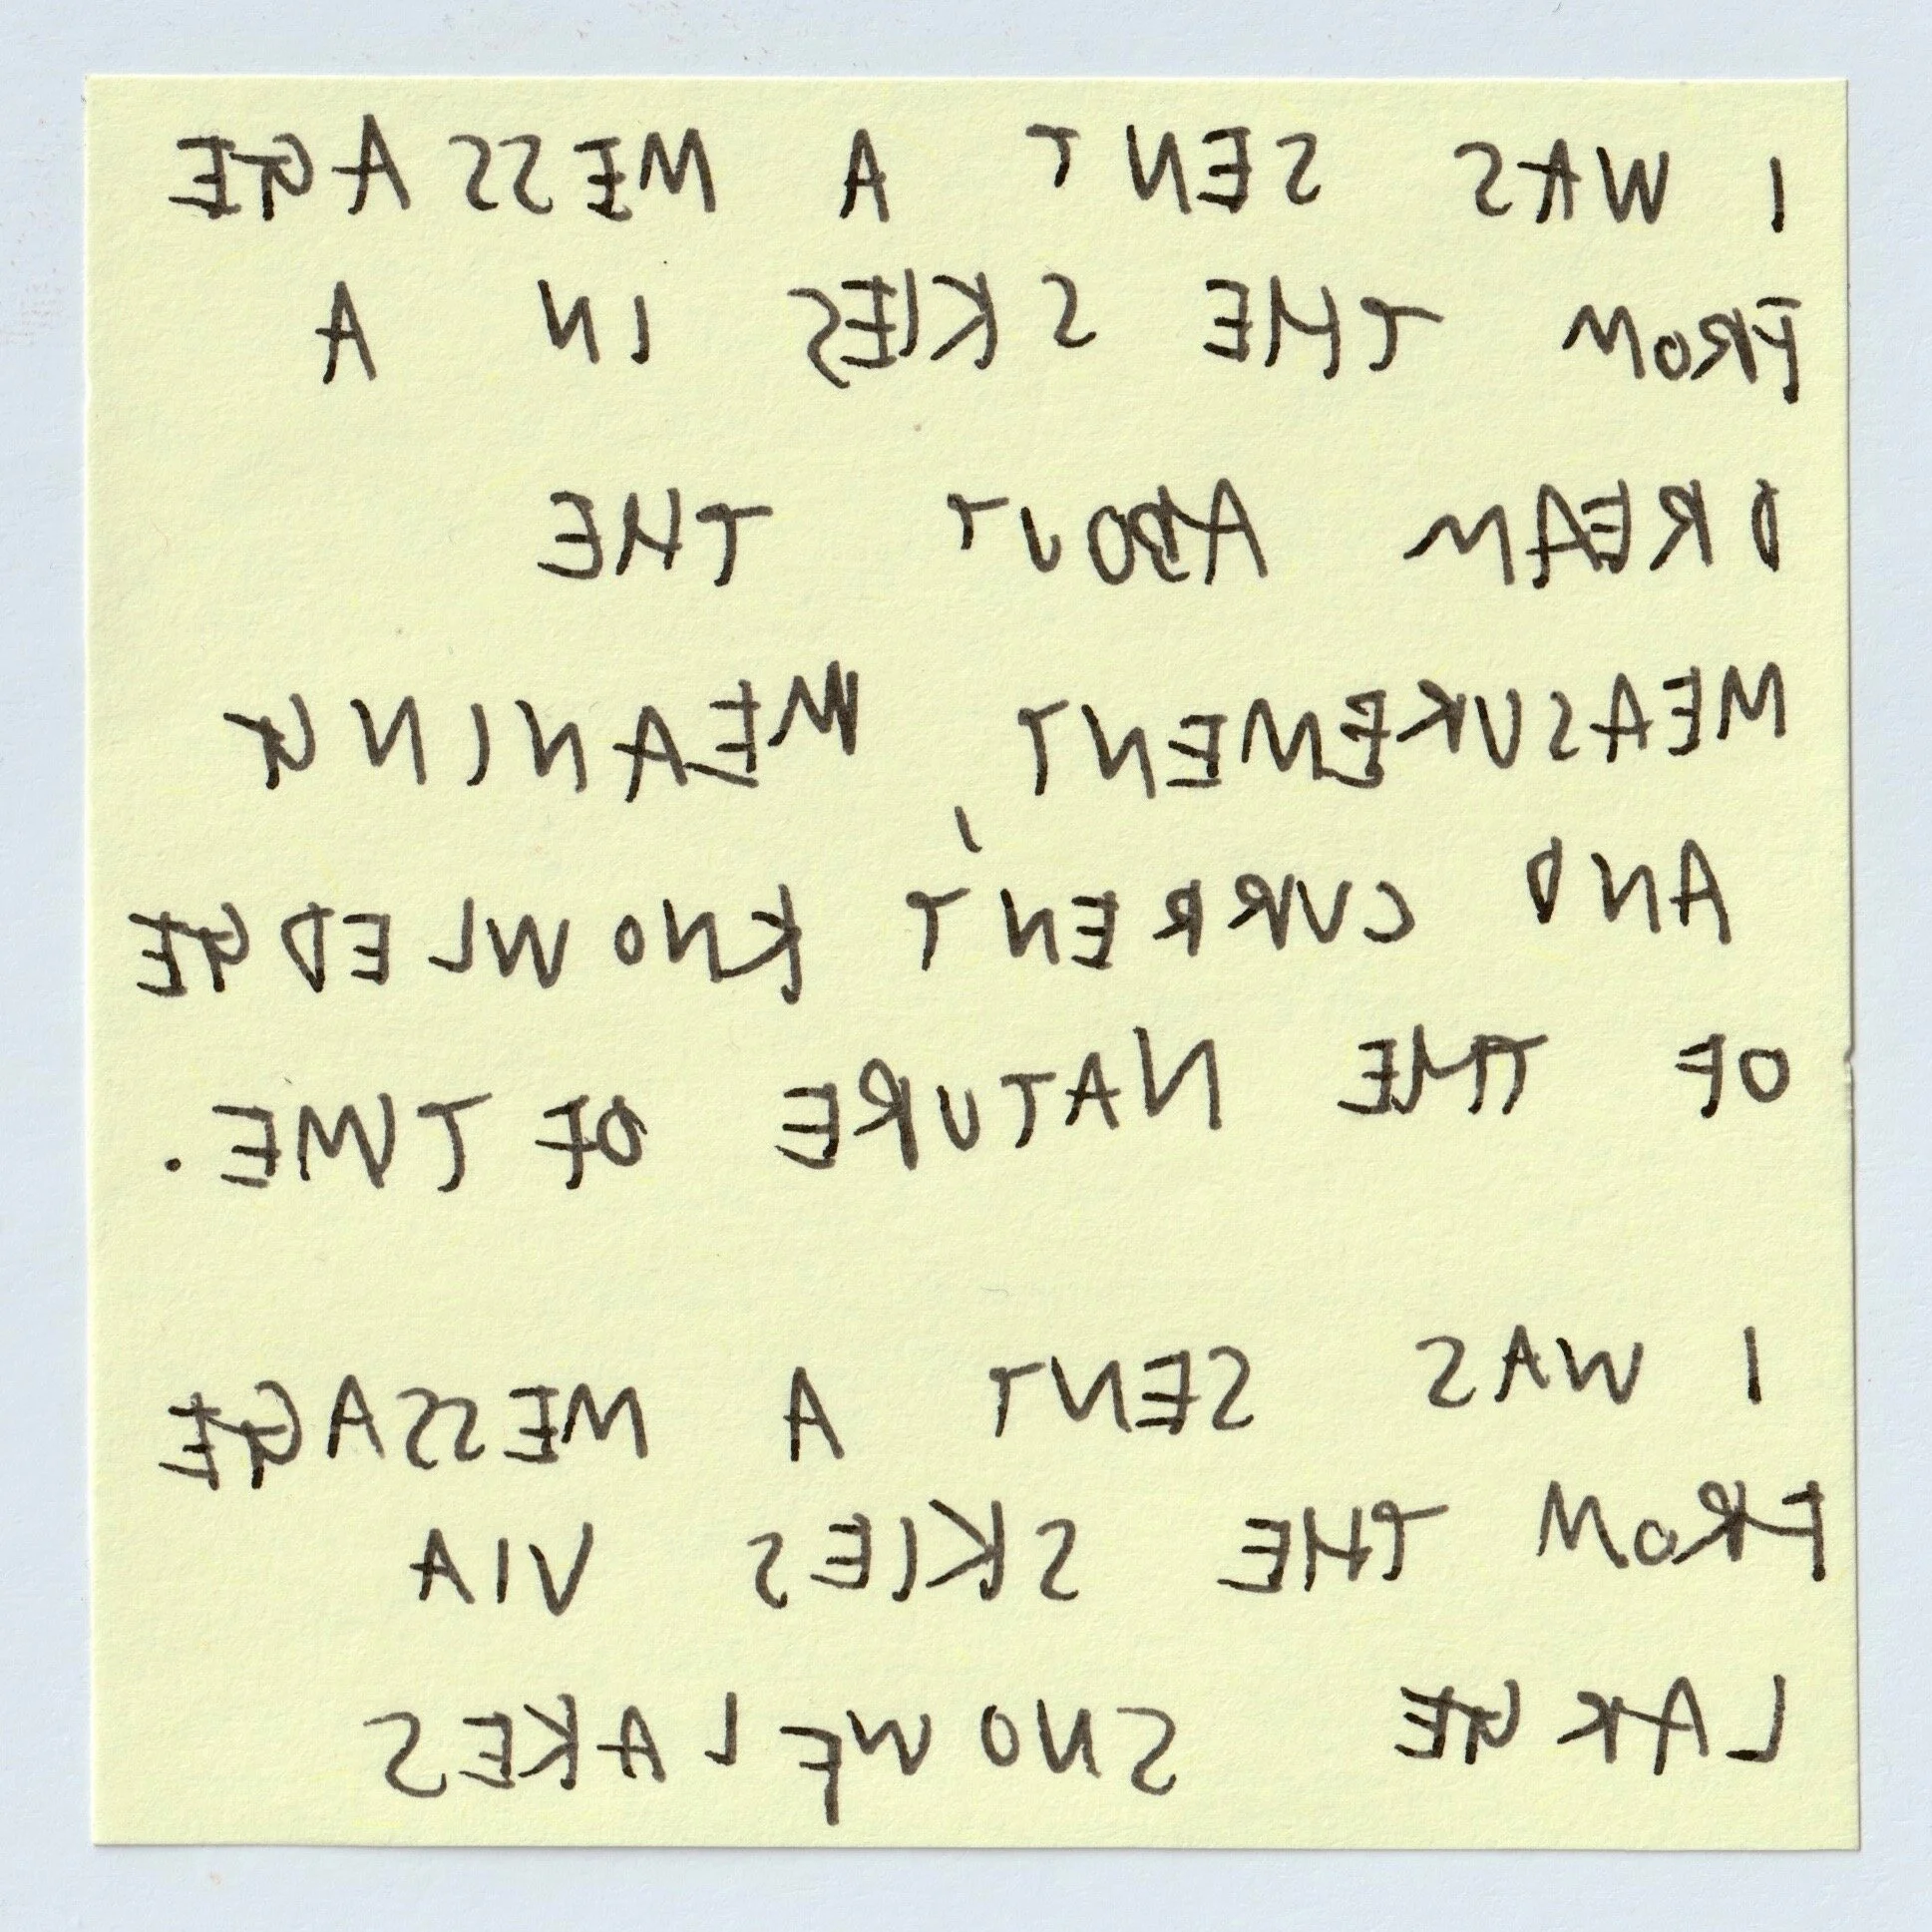 I WAS SENT A MESSAGE
FROM THE SKIES IN A
DREAM ABOUT THE
MEASUREMENT, MEANING
AND CURRENT KNOWLEDGE
OF THE NATURE OF TIME.
I WAS SENT A MESSAGE
FROM THE SKIES VIA
LARGE SNOWFLAKES